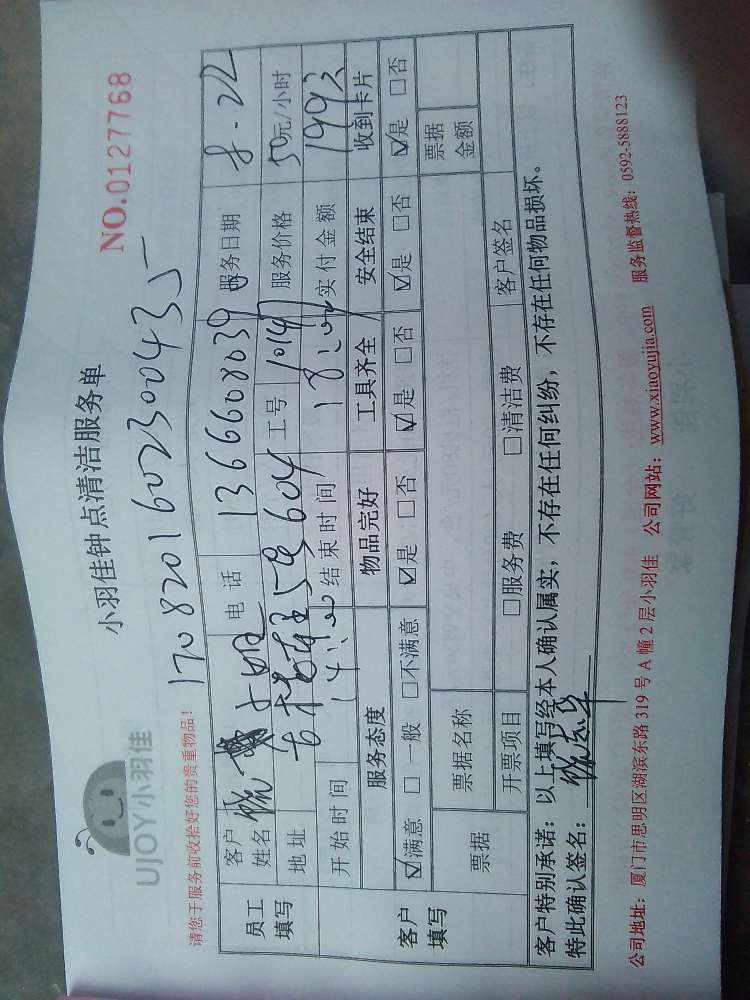 UJOY小羽佳
小羽佳钟点清洁服务单
NO.0127768
请您于服务前收拾好您的贵重物品!
170820160230043
员工填写
客户姓名 小姐 电话 13666608039 服务日期 8.22
地址 5号604 工号 服务价格 50元/小时
开始时间 14:00 结束时间 18:00 实付金额 199
客户填写
服务态度 物品完好 工具齐全 安全结束 收到卡片
☑满意 □一般 □不满意 ☑是 □否 ☑是 □否 ☑是 □否 ☑是 □否
票据 票据名称 票据金额
开票项目 □服务费 □清洁费 客户签名
客户特别承诺:以上填写经本人确认属实,不存在任何纠纷,不存在任何物品损坏。
特此确认签名:
公司地址:厦门市思明区湖滨东路319号A幢2层小羽佳 公司网站:www.xiaoyujia.com 服务监督热线:0592-5888123